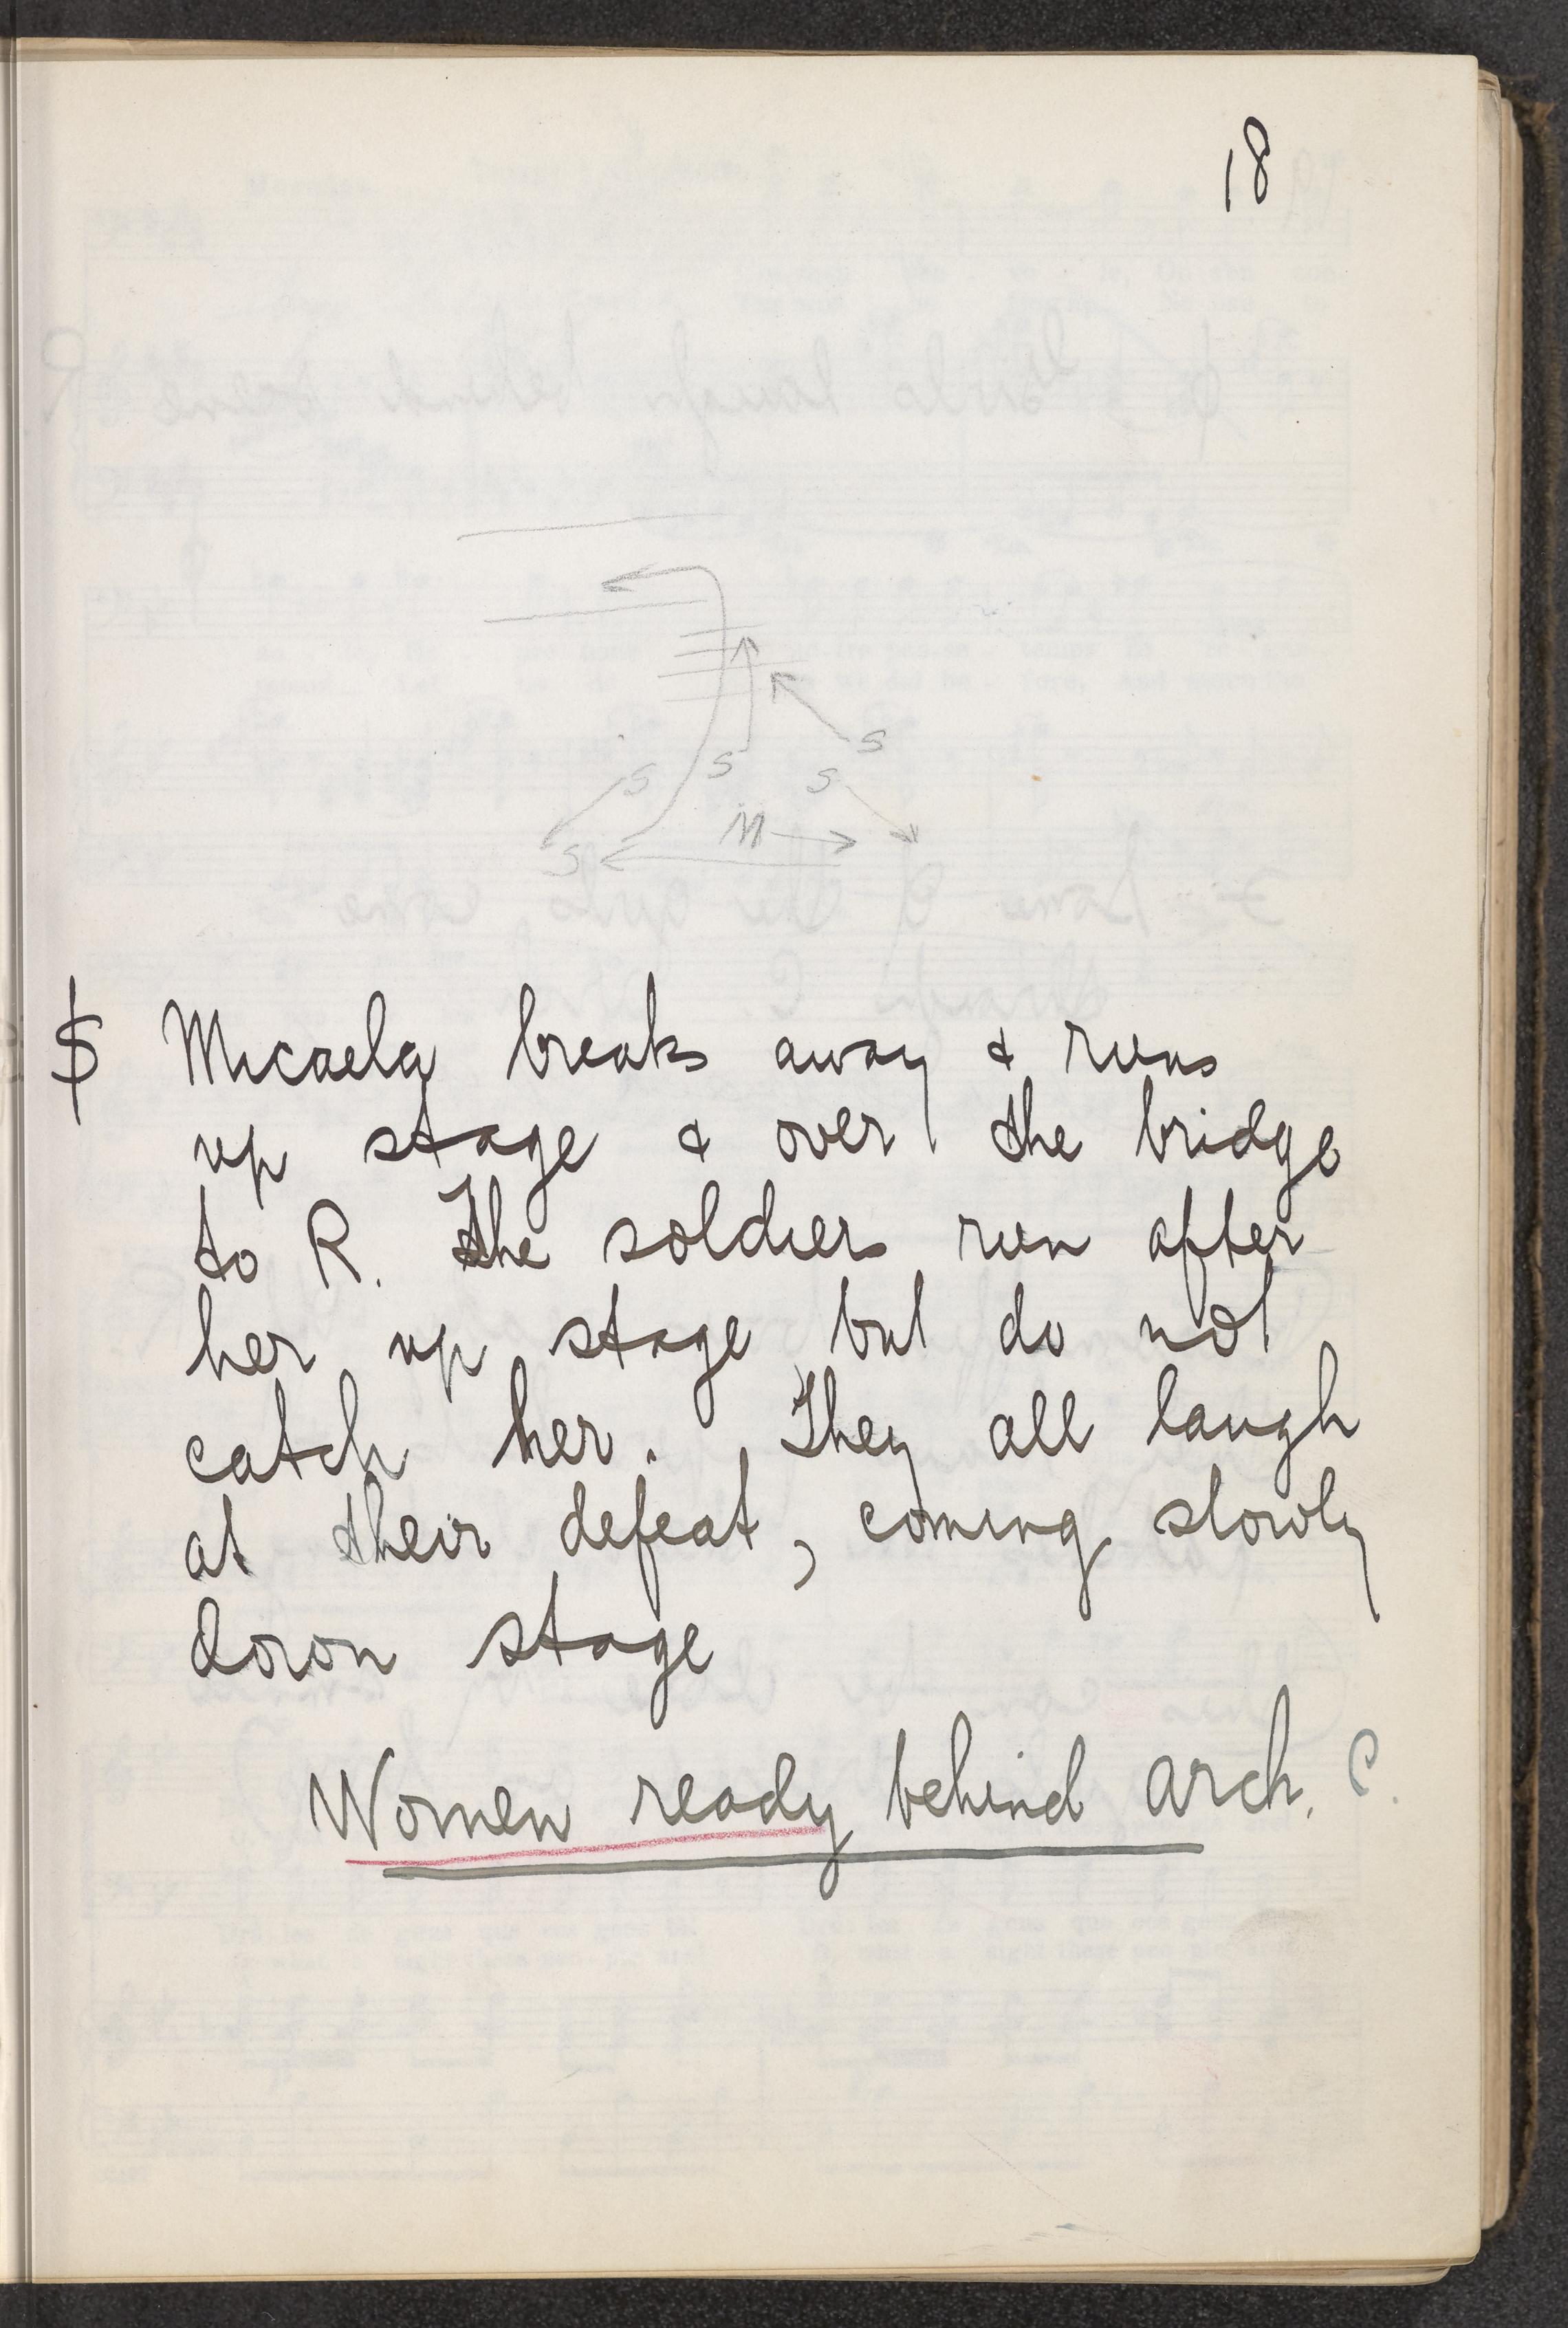 18
S
S
S
S
M
S
$ Micaela breaks away & runs
up stage & over the bridge
to R. The soldiers run after
her up stage but do not
catch her. They all laugh
at their defeat, coming slowly
down stage
Women ready behind arch. C.